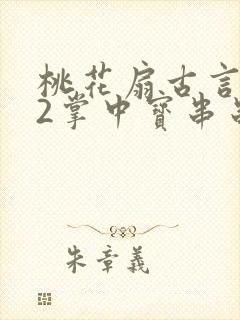 桃花扇古言
2掌中寳串
朱章義